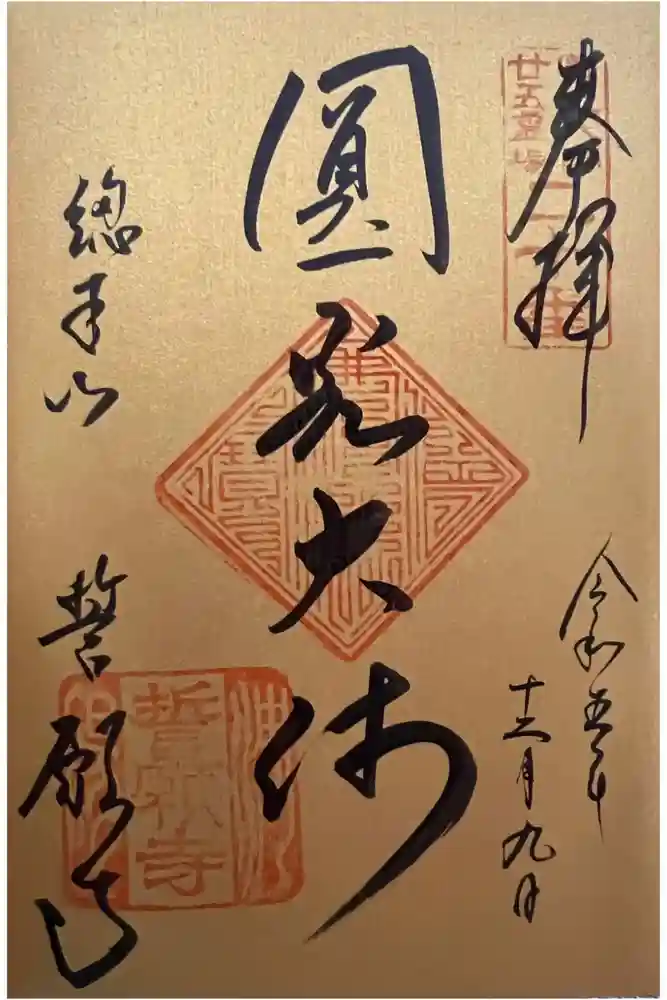 奉拝
廿五霊場
圓光大師
令和五年
十二月九日
総本山
誓願寺
誓願寺